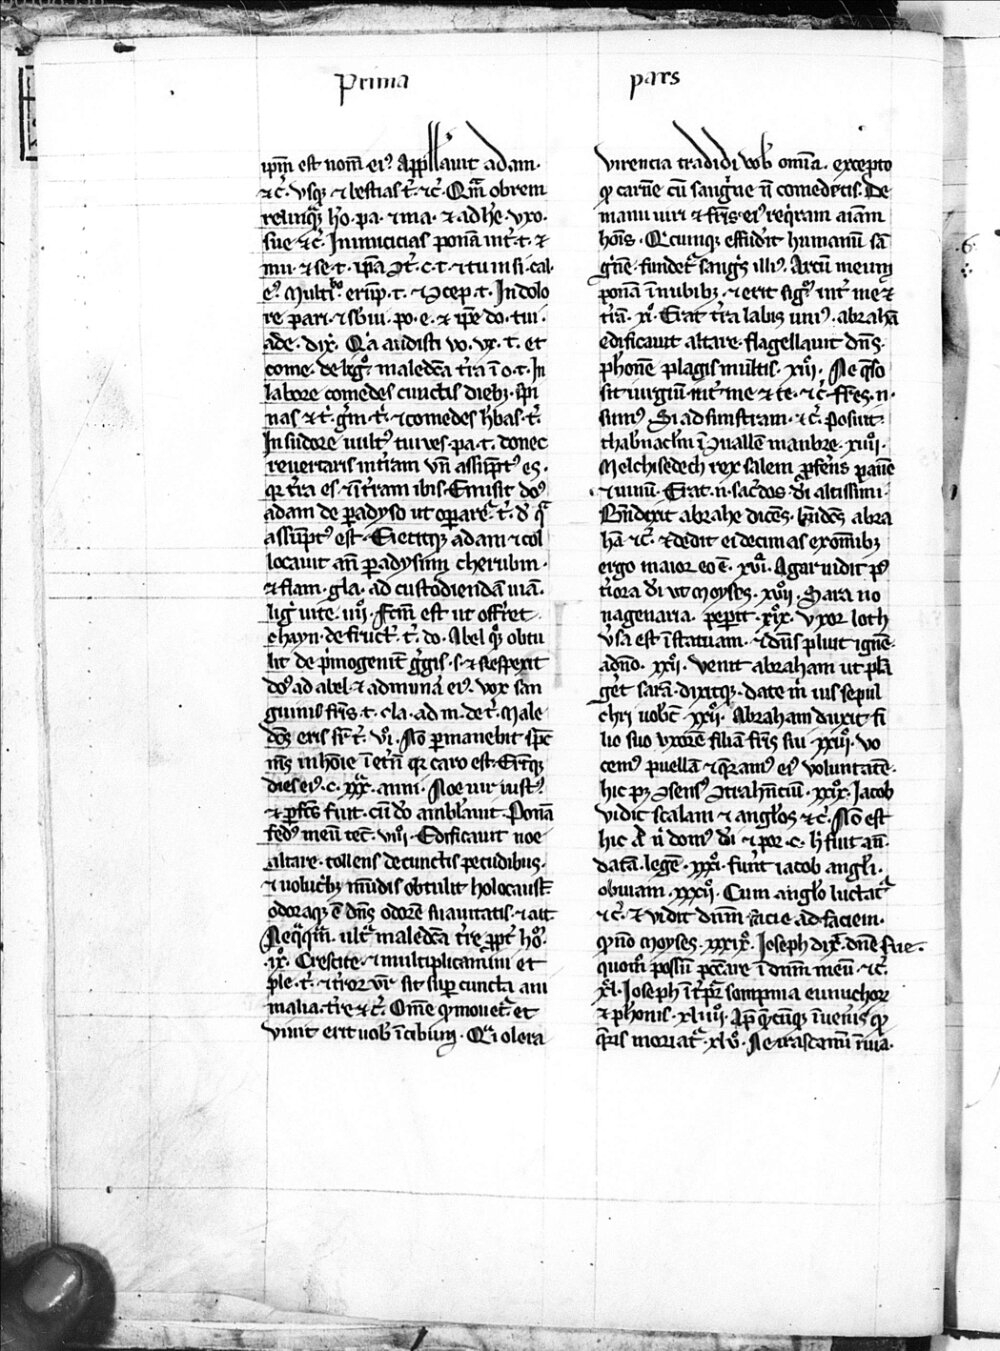 Prima
pars
ipm est nom ei9 Appellauit adam.
⁊ c̄. Vsq; ⁊ bestias t̄. ⁊ c̄. Qm̄ obrem
relinq; ho. pa. ⁊ ma. ⁊ adhe. vxo.
sue ⁊ c̄. Inimicicias ponā int̄. t. ⁊
mu. ⁊ se. t. ip̄a ꝯt̄. c. t. ⁊ tu insi. cal.
e9. Multi erūp. t. ⁊ ꝯcep. t. In dolo
re pari. ⁊ sb ui. po. e. ⁊ ip̄e do. tui.
ade. dix̄. Q'a audisti vo. vx. t. et
come. de lig̊. maledc̄a tr̄a ī o. t. In
labore comedes cunctis dieb;. spi
nas ⁊ t̄. gīm. t̄. ⁊ comedes hbas. t̄.
In sudore uult9 tui ues. pa. t. donec
reuertaris in tr̄am vn̄ assūpt9 es.
qr tr̄a es. ⁊ ī tr̄am ibis. Emisit do9
adam de ꝑadyso ut oꝑaret̄. t̄. d' q̄
assūpt9 est. Eiecitq; adam ⁊ col
locauit an̄ ꝑadysum cherubin.
⁊ flam. gla. ad custodiendā uiā.
liḡ uite. iiij. Fcm̄ est ut offr̄et
chayn. de fruct̄. t̄. do. Abel q̊; obtu
lit de p'mogenit̄ g̊gis. s. ⁊ respexit
do9 ad abel. ⁊ ad muna ei9. vox san
guinis fr̄is. t. cla. ad m. de t̄. Male
dc̄9 eris sr̄ t̄. vj. Nō ꝑmanebit sp̄c
m̄s in hoīe ī et'n̄ qr caro est. Erūtq;
dies ei9. c. xx. anni. Noe uir iust9
⁊ ꝑfc̄9 fuit. cū do ambl'auit. Ponā
fed9 meū tec̄. viij. Edificauit noe
altare. tollens de cunctis pecudibus.
⁊ uolucb; mūdis obtulit holocaust̄.
odoraq; ē dn̄s odorē suauitatis. ⁊ ait
Neq̄q̄m. ult̄ maledcā tr̄e ꝓpt̄ hōī.
ix. Crescite. ⁊ multiplicamini et
ple. t̄. ⁊ tr̄or vr̄ sit suꝑ cuncta ani
malia. tr̄e ⁊ c̄. Om̄e q̊ mouet̄. et
viuit erit uob' ī cibum. Q'i olera
virencia tradidi vob' omīa. excepto
q̊ carnē cū sanguīe n̄ comedetis. De
manu uiri ⁊ fr̄is. ei9 req'ram aīam
hoīs. Q'cunq; effud'it humanū sā
guīe. fundet̄ sanguīs illi9. Arcū meum
ponā ī nubib;. ⁊ erit sig̊; int̄ me ⁊
tr̄ā. xj. Erat tr̄a labij uni9. abrahā
edificauit altare. flagellauit dn̄s.
ph'onē plagis multis. xiij. Ne q̄so
sit iurgiū int̄ me ⁊ te. ⁊ c̄. fr̄es. n.
sum9. Si ad sinistram. ⁊ c̄. Posuit.
thab'naclm̄ ī ꝯualle mambre. xiiij.
Melchisedech rex salem ꝓfens panē
⁊ uinū. Erat. n. sac̄dos di altissimi.
Bn̄dixit abrahe dicēs. bn̄dc̄s abra
hā ⁊ c̄. ⁊ dedit ei decimas ex om̄ib;
ergo maior eo ē. xvj. Agar uidit p9
t̄iora di ut moyses. xvij. Sara no
nagenaria. peꝑit. xix. vxor loth
v'sa est ī statuam. ⁊ dn̄s pluit ignē.
a dn̄o. xxij. venit abraham ut plā
g̊et sarā. dixitq;. date m̄ ius sepul
chri uobc̄ xxij. Abraham duxit fi
lio suo vxorē filiā fr̄is sui. xxiij. vo
cem9 puellā ⁊ q̄ram9 ei9 voluntatē.
hic p; ꝯsens9 ꝯtrahn̄ciū. xxix. Jacob
vidit scalam ⁊ anglos ⁊ c̄. Nō est
hic al' n̄ dom9 di ⁊ por. c. h' fuit an̄.
datā. legē. xxxj. fuīt iacob angl'i.
obuiam. xxxij. Cum anglo luctat̄
⁊ c̄. ⁊ vidit dn̄m facie ad faciem.
q̊ nō moyses. xxxix. Joseph dix̄. dn̄e sue.
quom̄ possū peccare ī dn̄m meū. ⁊ c̄.
xl. Joseph ī t̄pr̄ sompnia eunuchor
⁊ ph'onis. xliiij. Ap̄ q̄cūq; īuen9 q̊
q̄ris moriat̄. xlv. Ne irascamī ī uia.